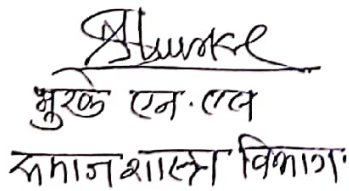 भुरके एन. एल
समाजशास्त्र विभाग.